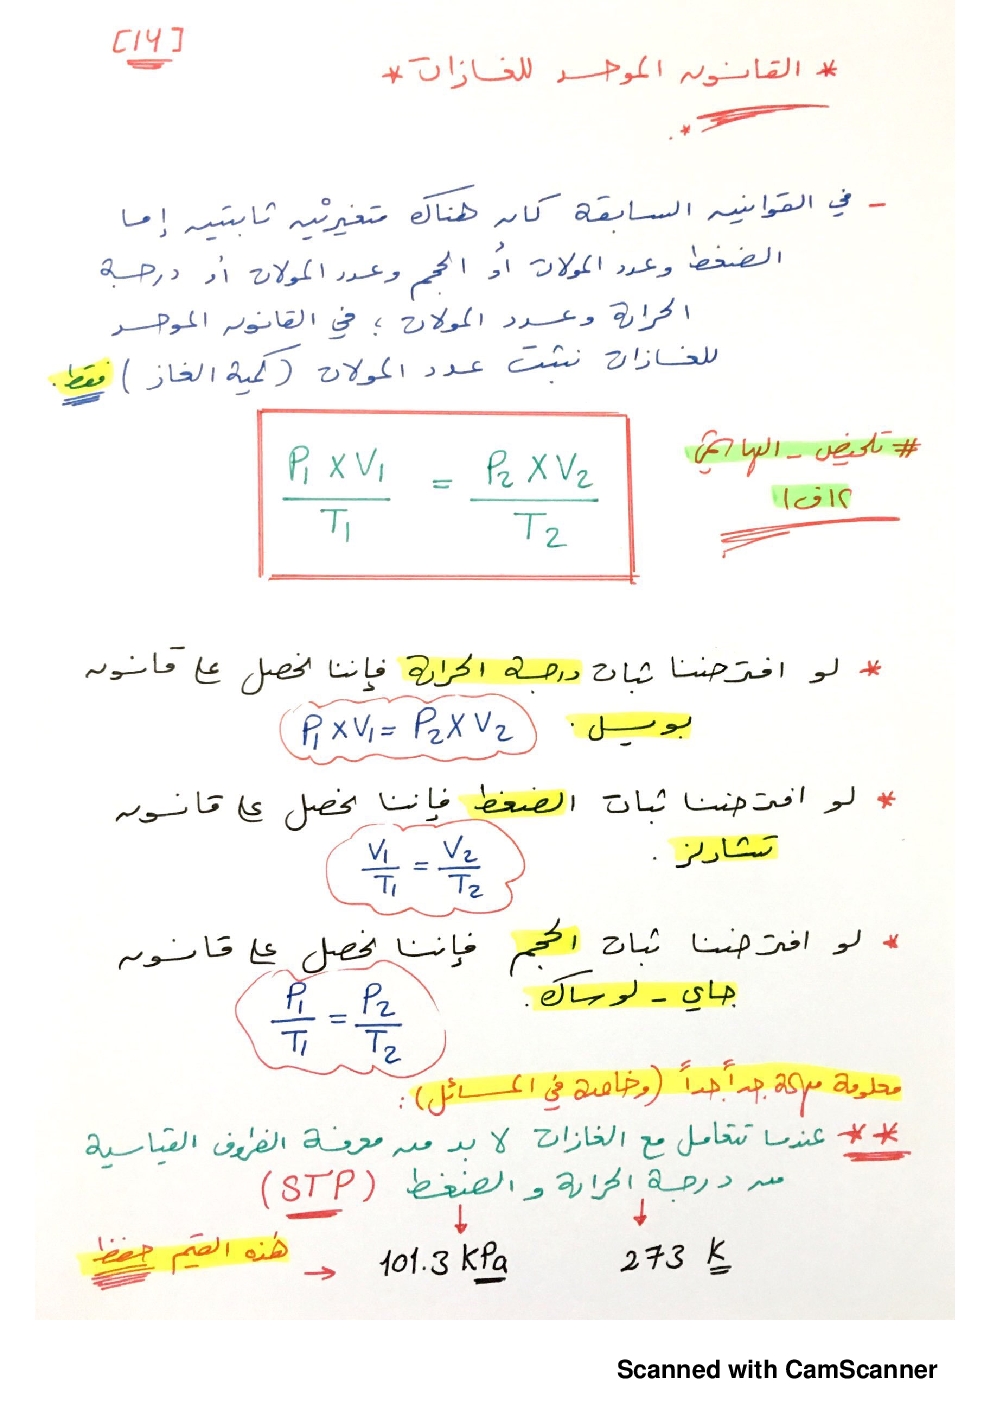 [14]
* القانون الموحد للغازات *
- في القوانين السابقة كان هناك متغيرين ثابتين إما
الضغط وعدد المولات أو الحجم وعدد المولات أو درجة
الحرارة وعدد المولات ، في القانون الموحد
للغازات نثبت عدد المولات (كمية الغاز) فقط.
P1 X V1 / T1 = P2 X V2 / T2
# تلخيص - الهاجري
١٢ف١
* لو افترضنا ثبات درجة الحرارة فإننا نحصل على قانون
بويل. P1 X V1 = P2 X V2
* لو افترضنا ثبات الضغط فإننا نحصل على قانون
تشارلز.
V1 / T1 = V2 / T2
* لو افترضنا ثبات الحجم فإننا نحصل على قانون
جاي - لوساك.
P1 / T1 = P2 / T2
معلومة مهمة جداً جداً (وخاصة في المسائل):
** عندما نتعامل مع الغازات لا بد من معرفة الظروف القياسية
من درجة الحرارة و الضغط (STP)
273 K
101.3 KPa
هذه القيم حفظ
Scanned with CamScanner